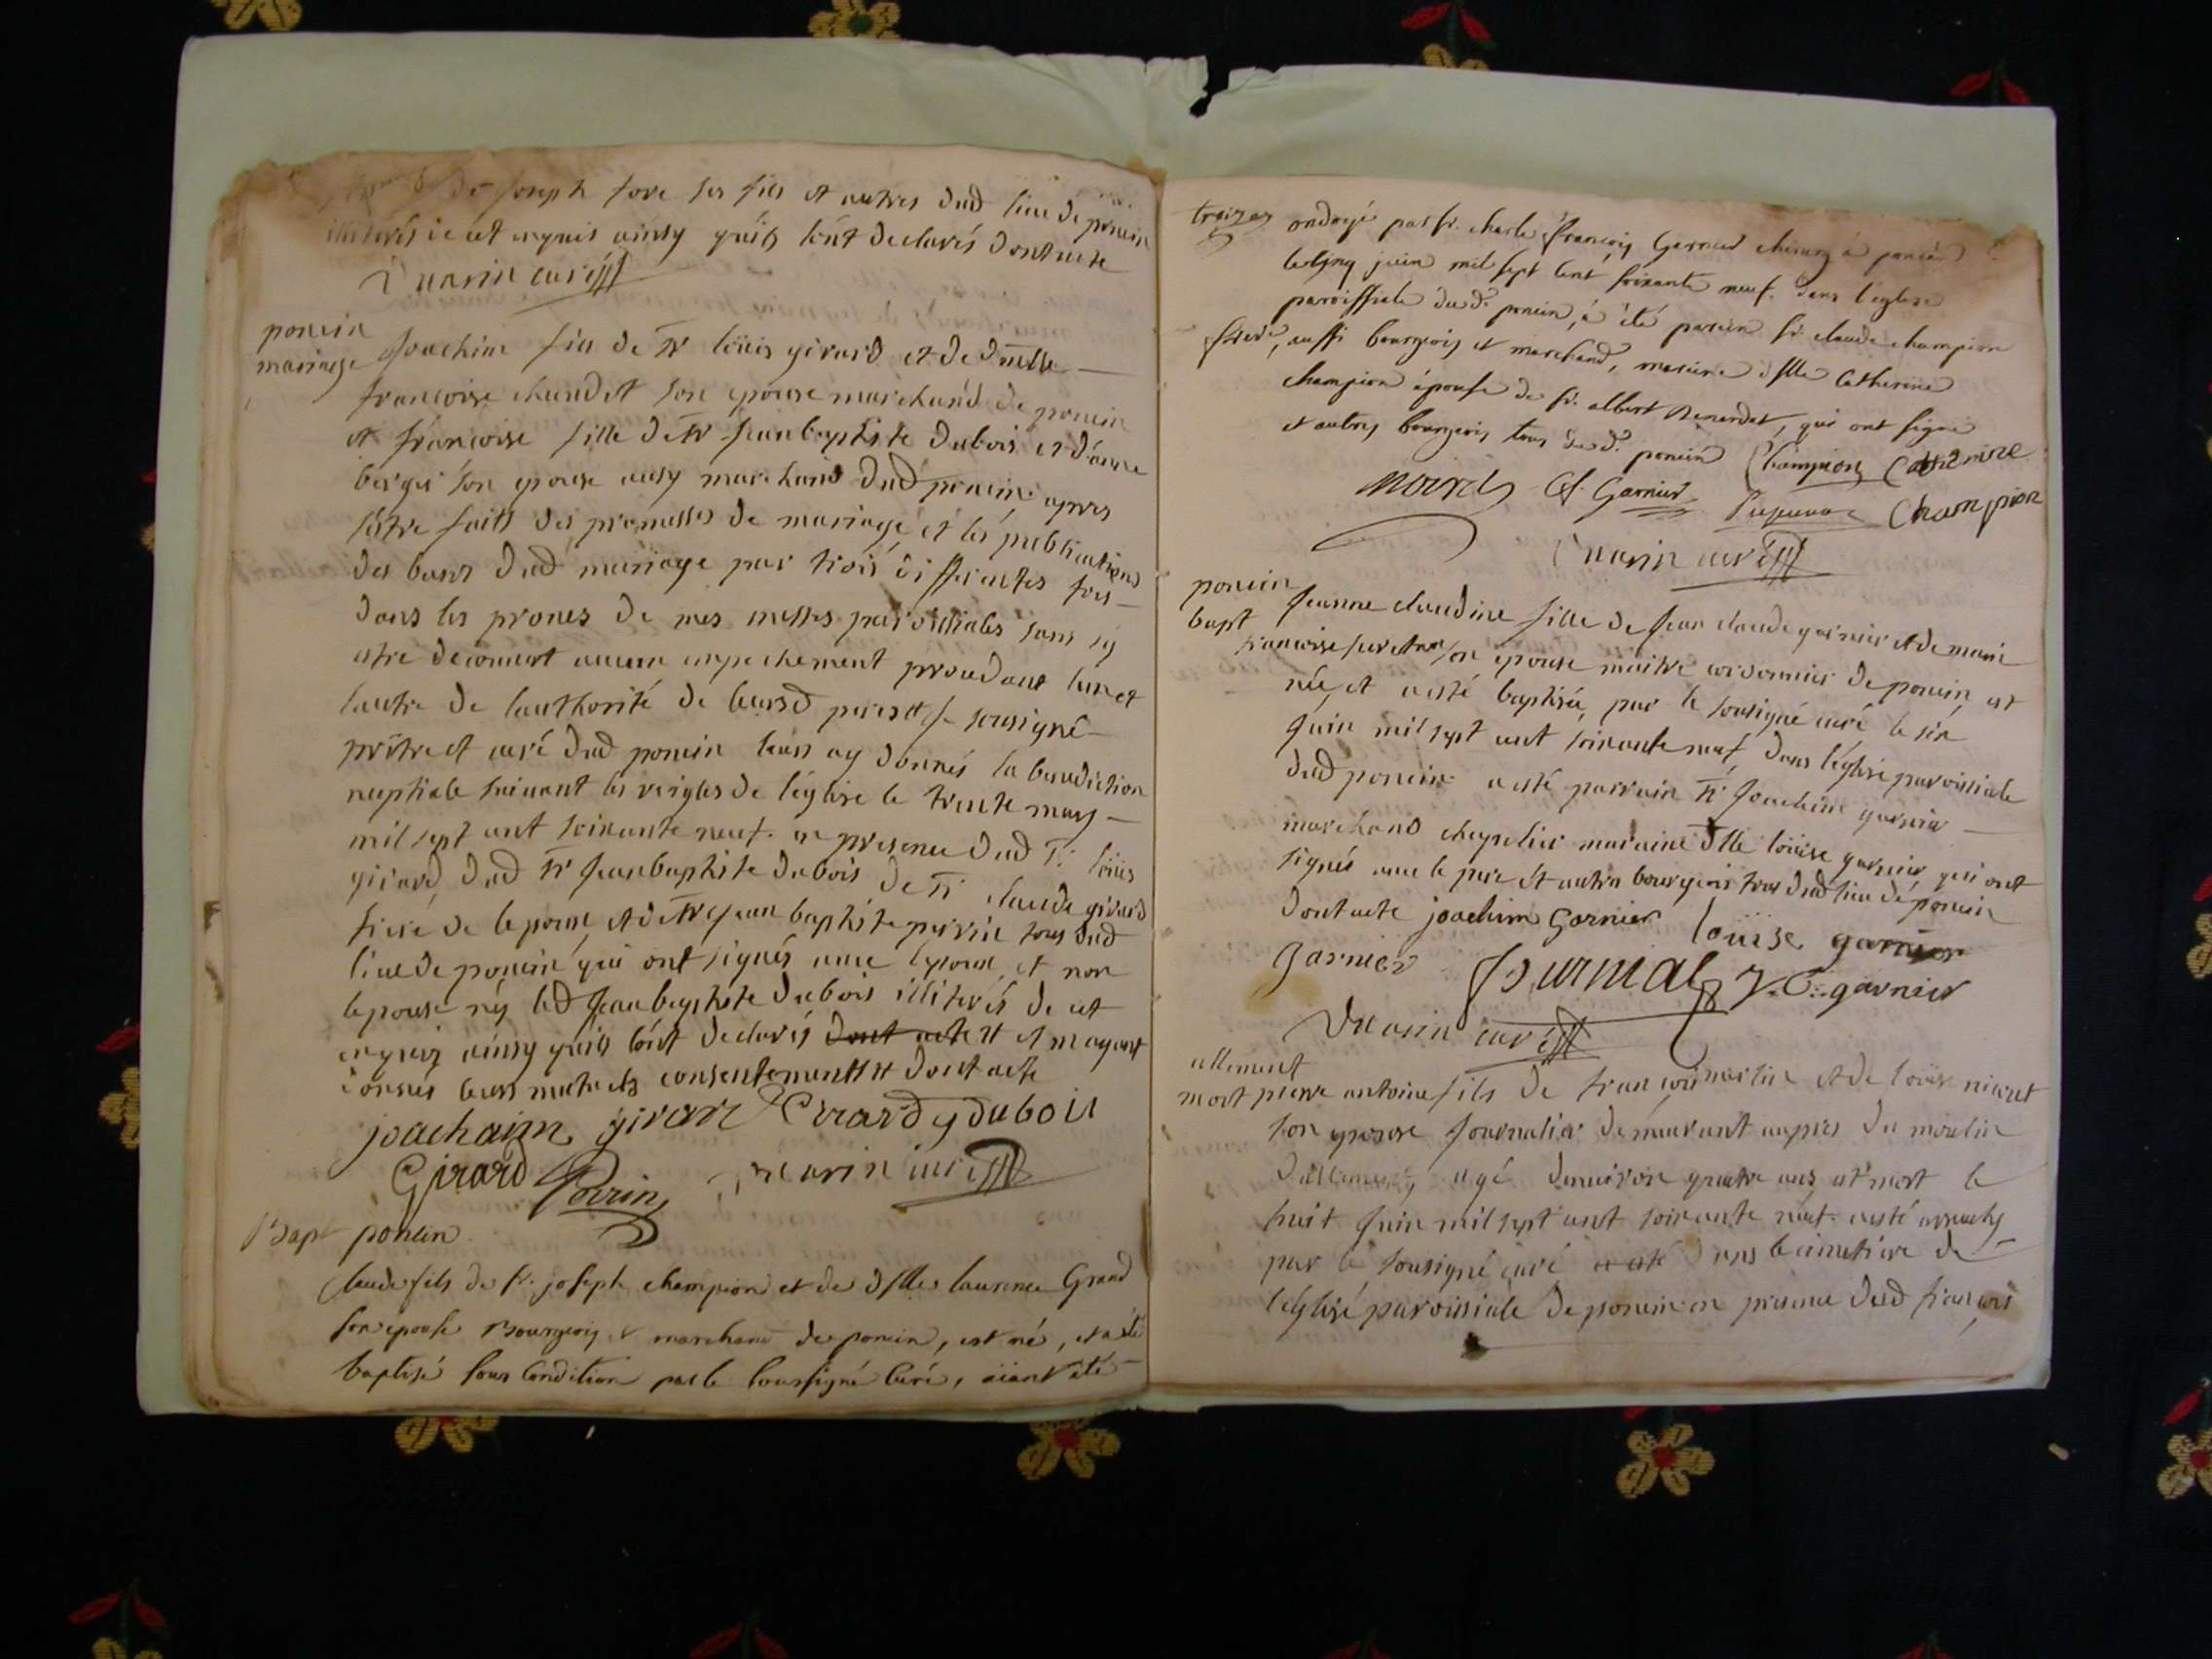 de joseph fore ses fils et autres dud lieu de poncin
illiterés de cet enquis ainsy quils lont declarés dont acte
marin curé
poncin
mariage
joachim fils de sr loüis girard et de dmlle
francoise chaudet son epouse marchand de poncin
et francoise fille de sr jean baptiste dubois et d'anne
berger son epouse ausy marchand dud poncin, apres
sestre faits des promesses de mariage et les publications
des bans dud mariage par trois differentes fois
dans les prones de mes messes paroissiales sans sy
estre decouvert aucun empechement procedant lun et
lautre de lauthorité de leursd peres je sousigné
prêtre et curé dud poncin leurs ay donnés la benediction
nuptiale suivant les reigles de léglise le trente may
mil sept cent soixante neuf. en presence dud sr loüis
girard, dud sr jean baptiste dubois de sr claude girard
frere de lepoux, et de sr jean baptiste perrin tous dud
lieu de poncin qui ont signés avec lepoux, et non
lepouse ny led jean baptiste dubois illiterés de cet
enquis ainsy quils lont declarés dont acte et mayant
donnés leurs mutuels consentements dont acte
joachaim girard Girard g dubois
Girard Perrin marin curé
Bapt poncin
Claude fils de sr. joseph champion et de dslle laurence Grand
son epouse Bourgeois et marchand de poncin, est né, et a été
baptisé sous Condition par le soussigné Curé, aiant été
ondoyé par sr. charle françois Garnier chirurg à poncin
le cinq juin mil sept cent soixante neuf. dans l'eglise
paroissiale dud. poncin, à été parain sr. claude champion
frere, aussi bourgeois et marchand, maraine dslle Catherine
champion épouse de sr. albert Benerdet, qui ont signé
et autres bourgeois tous dud. poncin Champion Catherine
Cf. Garnier Champion
marin curé
poncin
bapt
jeanne claudine fille de jean claude garnier et de marie
francoise son epouse maitre cordonnier de poncin, est
née, et a esté baptisée par le sousigné curé le six
juin mil sept cent soixante neuf, dans léglise paroissiale
dud poncin a esté parrain sr joachim garnier
marchand chapelier maraine dlle loüise garnier qui ont
signés avec le pere et autres bourgeois tous dud lieu de poncin
dont acte joachim Garnier loüise garnier
garnier Journal J. C. garnier
marin curé
allement
mort pierre antoine fils de francois martin et de loüise
son epouse journalier demeurant aupres du moulin
dallement, agé denviron quatre ans, est mort le
huit juin mil sept cent soixante neuf. a esté
par le sousigné curé dans le cimetiere de
léglise paroissiale de poncin en presence dud francois